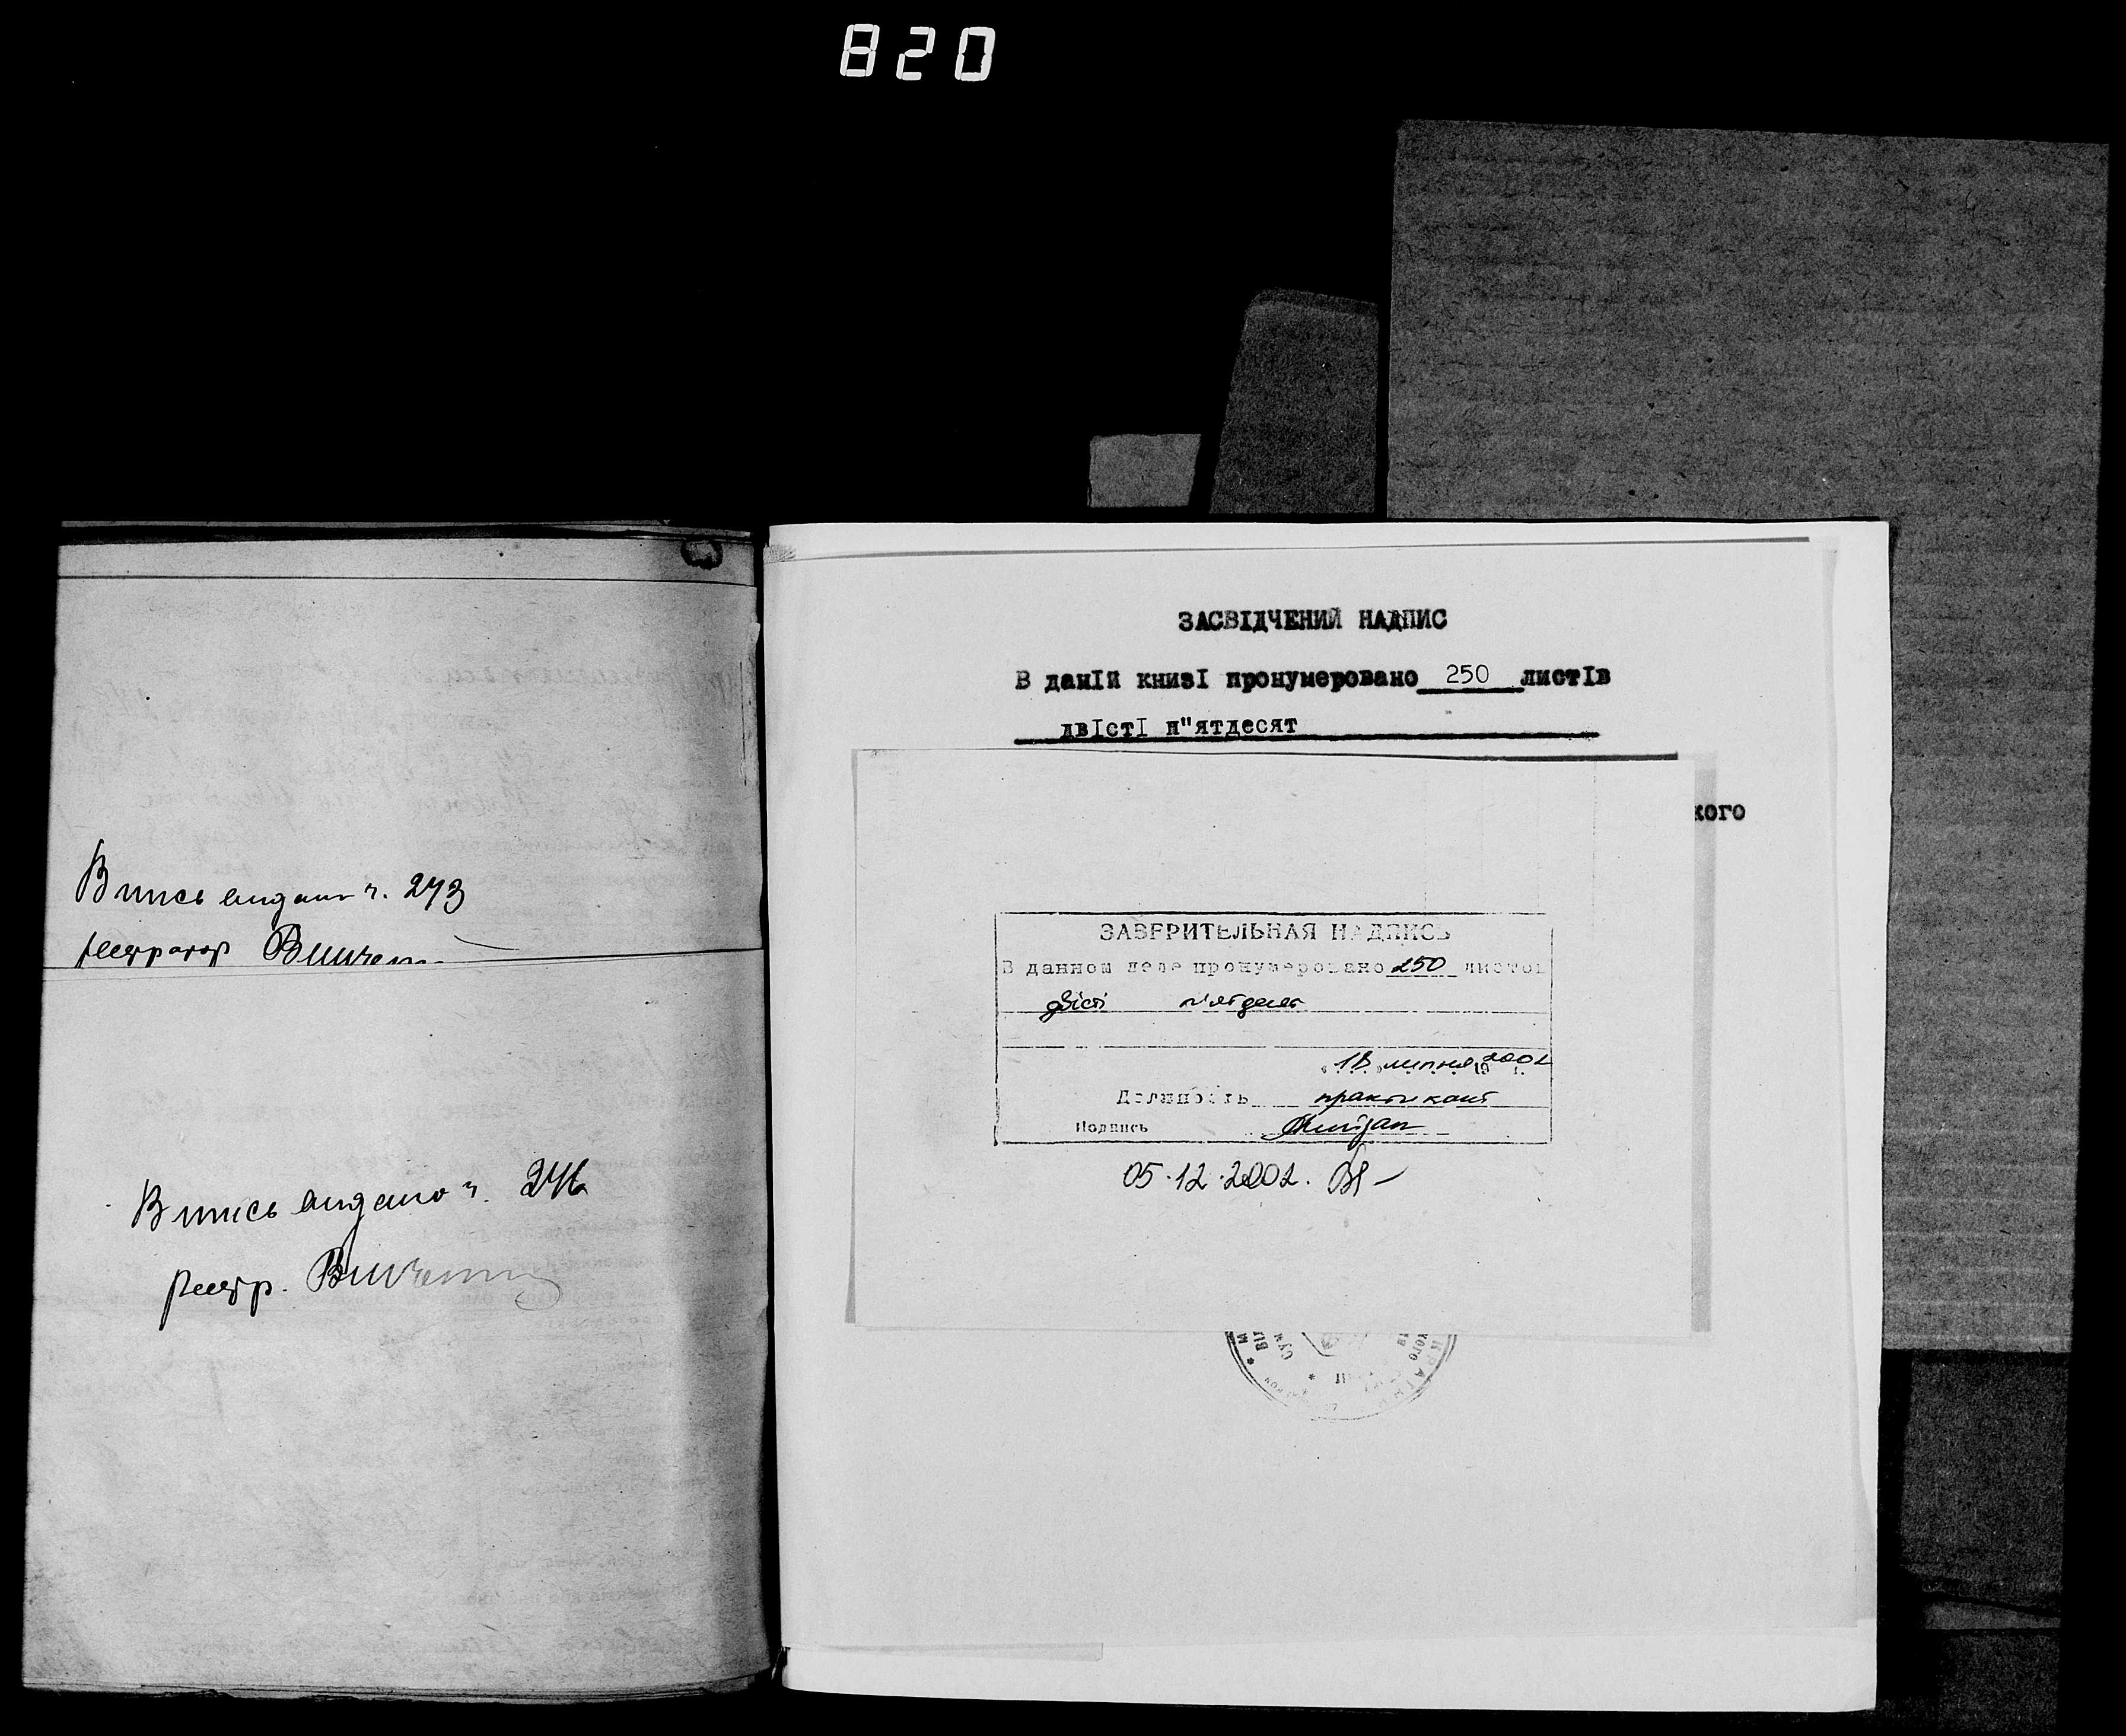 820
Впись видано ч. 273
реєстратор
Впись видано ч. 246
реєстр.
ЗАСВІДЧЕНИЙ НАДПИС
В даній книзі пронумеровано 250 листів
двісті п"ятдесят
кого
ЗАВЕРИТЕЛЬНАЯ НАДПИСЬ
В данном деле пронумеровано 250 листов
двісті п'ятдесят
"18" липня 2002
19 г.
Должность практикант
Подпись
05.12.2002.